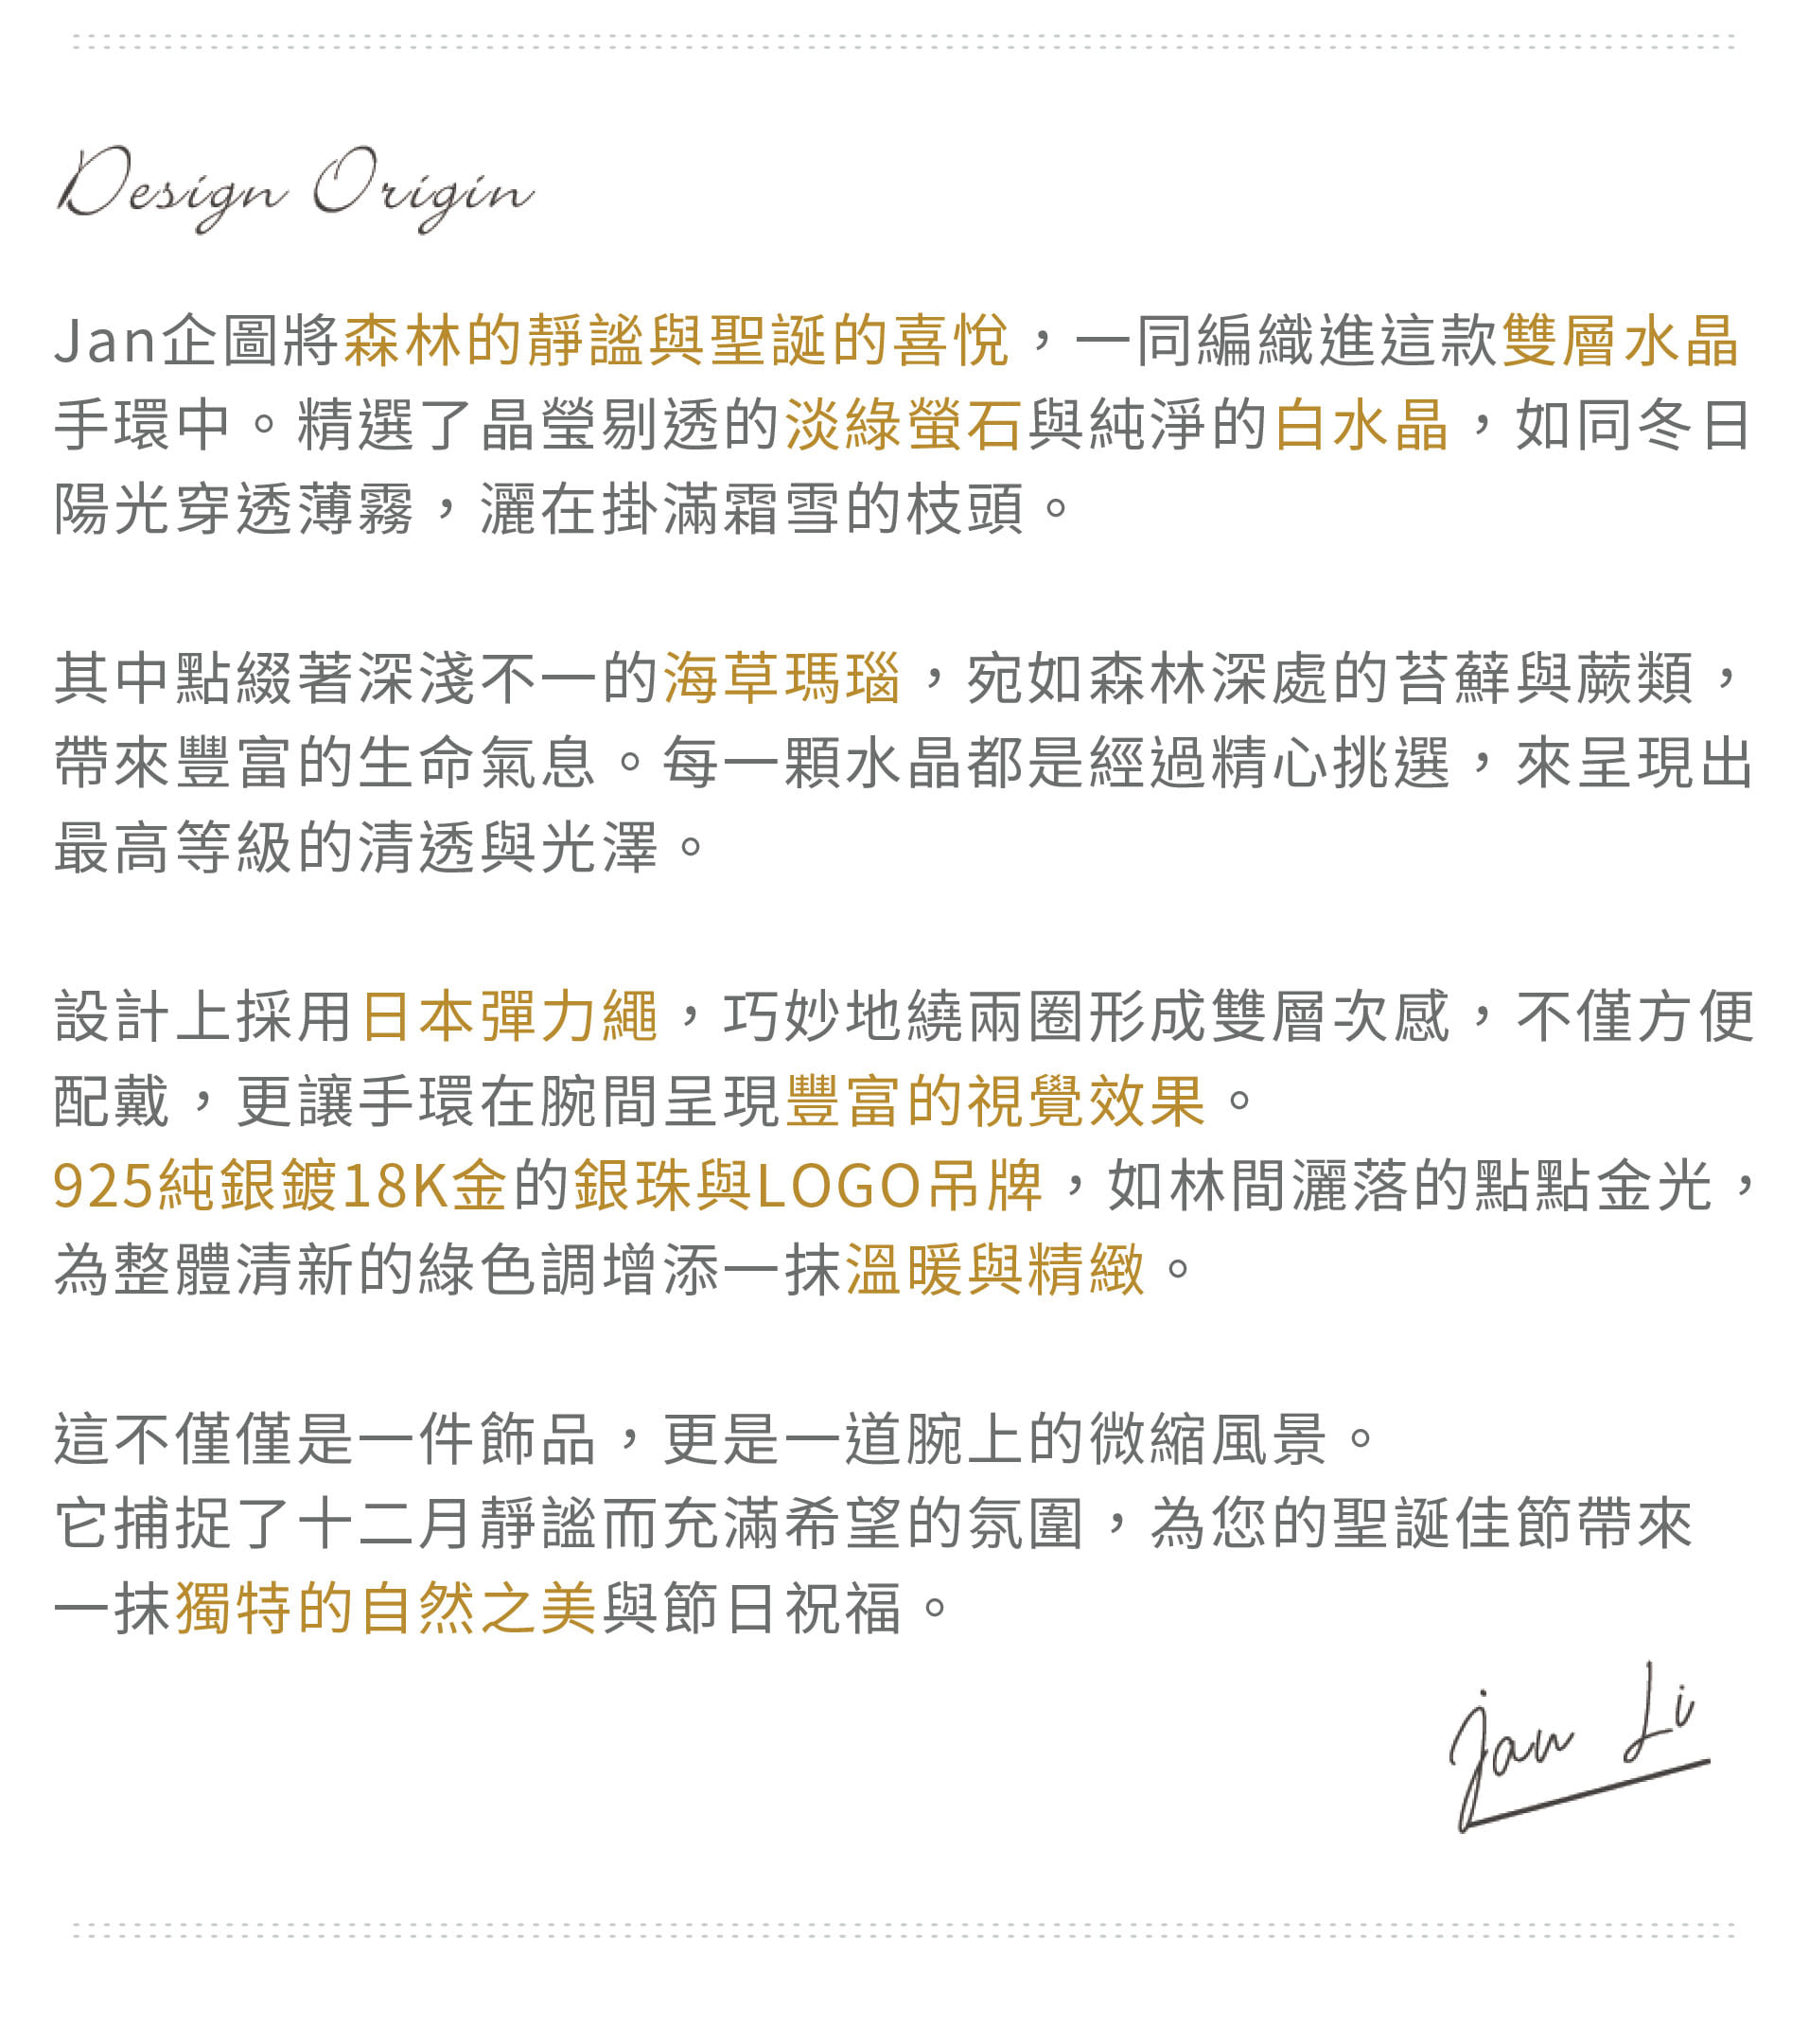 Design Origin
Jan企圖將森林的靜謐與聖誕的喜悅，一同編織進這款雙層水晶
手環中。精選了晶瑩剔透的淡綠螢石與純淨的白水晶，如同冬日
陽光穿透薄霧，灑在掛滿霜雪的枝頭。
其中點綴著深淺不一的海草瑪瑙，宛如森林深處的苔蘚與蕨類，
帶來豐富的生命氣息。每一顆水晶都是經過精心挑選，來呈現出
最高等級的清透與光澤。
設計上採用日本彈力繩，巧妙地繞兩圈形成雙層次感，不僅方便
配戴，更讓手環在腕間呈現豐富的視覺效果。
925純銀鍍18K金的銀珠與LOGO吊牌，如林間灑落的點點金光，
為整體清新的綠色調增添一抹溫暖與精緻。
這不僅僅是一件飾品，更是一道腕上的微縮風景。
它捕捉了十二月靜謐而充滿希望的氛圍，為您的聖誕佳節帶來
一抹獨特的自然之美與節日祝福。
Jan Li